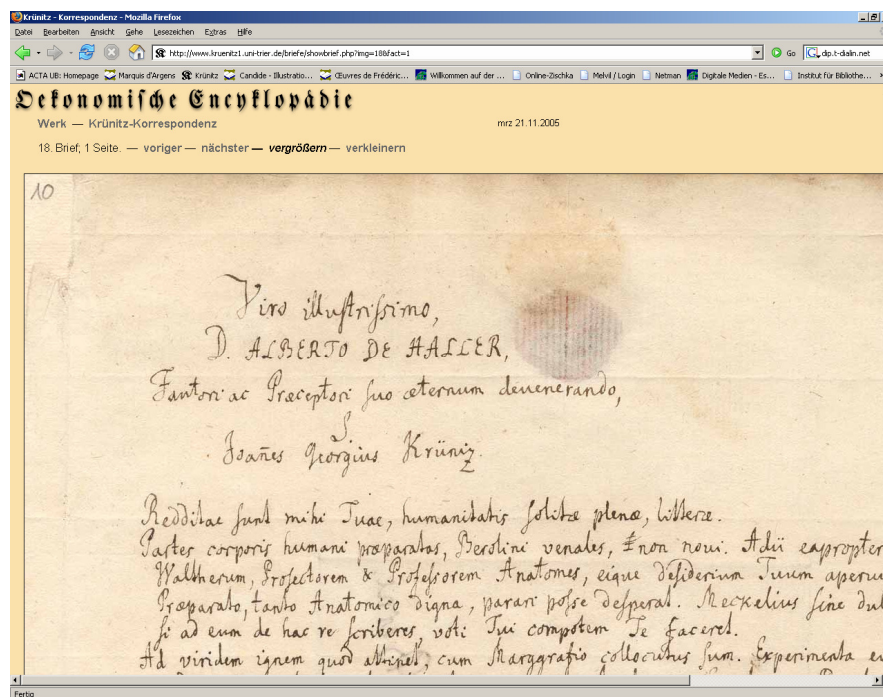 Krünitz - Korrespondenz - Mozilla Firefox
Datei Bearbeiten Ansicht Gehe Lesezeichen Extras Hilfe
http://www.kruenitz1.uni-trier.de/briefe/showbrief.php?img=18&fact=1 Go dip.t-dialin.net
ACTA UB: Homepage Marquis d'Argens Krünitz Candide - Illustratio... Œuvres de Frédéric... Willkommen auf der ... Online-Zischka Melvil / Login Netman Digitale Medien - Es... Institut für Bibliothe...
Oekonomische Encyklopädie
Werk — Krünitz-Korrespondenz mrz 21.11.2005
18. Brief; 1 Seite. — voriger — nächster — vergrößern — verkleinern
10
Viro illustrissimo,
D. ALBERTO DE HALLER,
Fautori ac Præceptori suo æternum devenerando,
S.
Joañes Georgius Krüniz.
Redditae sunt mihi Tuae, humanitatis solitæ plenæ, litteræ.
Partes corporis humani præparatas, Berolini venales, non novi. Adii eapropter
Waltherum, Prosectorem & Professorem Anatomes, eique desiderium Tuum aperui
Præparato, tanto Anatomico digna, parari posse desperat. Meckelius sine du
si ad eum de hac re scriberes, voti Tui compotem Te faceret.
Ad viridem ignem quod attinet, cum Marggrafio collocutus sum. Experimenta e
Fertig